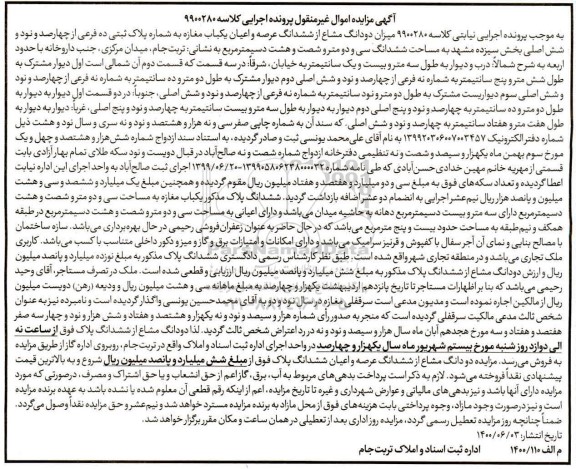 آگهی مزایده اموال غیرمنقول پرونده اجرایی کلاسه ۹۹۰۰۲۸۰
به موجب پرونده اجرایی نیابتی کلاسه ۹۹۰۰۲۸۰ میزان دودانگ مشاع از ششدانگ عرصه و اعیان یکباب مغازه به شماره پلاک ثبتی ده فرعی از چهارصد و نود و
شش اصلی بخش سیزده مشهد به مساحت ششدانگ سی و دو متر و شصت و هشت دسیمترمربع به نشانی: تربت‌جام، میدان مرکزی، جنب داروخانه با حدود
اربعه به شرح شمالاً: درب و دیوار به طول سه متر و بیست و یک سانتیمتر به خیابان، شرقاً: در سه قسمت که قسمت دوم آن شمالی است اول دیوار مشترک به
طول شش متر و پنج سانتیمتر به شماره نه فرعی از چهارصد و نود و شش اصلی دوم دیوار مشترک به طول دو متر و ده سانتیمتر به شماره نه فرعی از چهارصد و نود
و شش اصلی سوم دیواریست مشترک به طول دو متر و نود سانتیمتر به شماره نه فرعی از چهارصد و نود و شش اصلی، جنوباً: در دو قسمت اول دیوار به دیوار به
طول دو متر و ده سانتیمتر به چهارصد و نود و پنج اصلی دوم دیوار به دیوار به طول سه متر و بیست سانتیمتر به چهارصد و نود و پنج اصلی، غرباً: دیوار به دیوار به
طول هفت متر و هفتاد سانتیمتر به چهارصد و نود و شش اصلی. که سند آن به شماره چاپی صفر سی و نه هزار و هشتصد و نود و نه سری و سال نود و هشت ذیل
شماره دفتر الکترونیک ۱۳۹۹۲۰۳۰۶۰۰۷۰۰۳۴۵۷ به نام آقای علی‌محمد یونسی ثبت و صادر گردیده، به استناد سند ازدواج شماره شش‌هزار و هشتصد و چهل و یک
مورخ سوم بهمن ماه یکهزار و سیصد و شصت و نه تنظیمی دفترخانه ازدواج شماره شصت و نه صالح‌آباد در قبال دویست و نود سکه طلای تمام بهار آزادی بابت
قسمتی از مهریه خانم مهین خدادی حسن‌آبادی که طی اجرای ثبت صالح‌آباد به واحد اجرای این اداره نیابت
اعطا گردیده و تعداد سکه‌های فوق به مبلغ سی و دو میلیارد و هفتصد و هفتاد میلیون ریال مقوم گردیده و همچنین مبلغ یک میلیارد و ششصد و سی و هشت
میلیون و پانصد هزار ریال نیم‌عشر اجرایی به انضمام دو عشر اضافه بازداشت گردید. ششدانگ پلاک مذکور یکباب مغازه به مساحت سی و دو متر و شصت و هشت
دسیمترمربع دارای سه متر و بیست دسیمترمربع دهانه به حاشیه میدان می‌باشد و دارای اعیانی به مساحت سی و دو متر و شصت و هشت دسیمترمربع در طبقه
همکف و نیم‌طبقه به مساحت حدود بیست و پنج مترمربع می‌باشد که در حال حاضر به عنوان زعفران‌فروشی رحیمی در حال بهره‌برداری می‌باشد. سازه ساختمان
با مصالح بنایی و نمای آن آجر سفال با کفپوش و قرنیز سرامیک می‌باشد و دارای امکانات و امتیازات برق و گاز و میز و دکور داخلی متناسب با کسب می‌باشد. کاربری
ملک تجاری می‌باشد و در منطقه تجاری شهر واقع شده است. طبق نظر کارشناس رسمی دادگستری ششدانگ پلاک مذکور به مبلغ نوزده میلیارد و پانصد میلیون
ریال و ارزش دودانگ مشاع از ششدانگ پلاک مذکور به مبلغ شش میلیارد و پانصد میلیون ریال ارزیابی و قطعی شده است. ملک در تصرف مستاجر، آقای وحید
رحیمی می‌باشد که بنا بر اظهارات مستاجر تا تاریخ پانزدهم اردیبهشت یکهزار و چهارصد به مبلغ ماهانه سی و هشت میلیون ریال و ودیعه (رهن) دویست میلیون
ریال از مالکین اجاره نموده است و مدیون مدعی است سرقفلی مغازه در سال نود و دو به آقای محمدحسین یونسی واگذار گردیده است و نامبرده نیز به عنوان
شخص ثالث مدعی مالکیت سرقفلی گردیده است که منجر به صدور رأی شماره هزار و سیصد و نود و نه یکهزار و هفتصد و هشتاد و شش هزار و نود و چهار سه صفر
هفتصد و هفتاد و سه مورخ هجدهم آبان ماه سال هزار و سیصد و نود و نه در رد اعتراض شخص ثالث گردید. لذا دودانگ مشاع از ششدانگ پلاک فوق از ساعت نه
الی دوازد روز شنبه مورخ بیستم شهریور ماه سال یکهزار و چهارصد در واحد اجرای اداره ثبت اسناد و املاک واقع در تربت‌جام، روبروی اداره گاز از طریق مزایده
به فروش می‌رسد. مزایده دو دانگ مشاع از ششدانگ عرصه و اعیان ششدانگ پلاک فوق از مبلغ شش میلیارد و پانصد میلیون ریال شروع و به بالاترین قیمت
پیشنهادی نقداً فروخته می‌شود. لازم به ذکر است پرداخت بدهی‌های مربوط به آب، برق، گاز اعم از حق انشعاب و یا حق اشتراک و مصرف، درصورتی که مورد
مزایده دارای آنها باشد و نیز بدهی‌های مالیاتی و عوارض شهرداری و غیره تا تاریخ مزایده، اعم از اینکه رقم قطعی آن معلوم شده یا نشده باشد به عهده برنده مزایده
است و نیز درصورت وجود مازاد، وجوه پرداختی بابت هزینه‌های فوق از محل مازاد به برنده مزایده مسترد خواهد شد و نیم‌عشر و حق مزایده نقداً وصول می‌گردد.
ضمناً چنانچه روز مزایده تعطیل رسمی گردد، مزایده روز اداری بعد از تعطیلی در همان ساعت و مکان مقرر برگزار خواهد شد.
تاریخ انتشار: ۱۴۰۰/۰۶/۰۳
م الف ۱۴۰۰/۱۱۰
اداره ثبت اسناد و املاک تربت‌جام